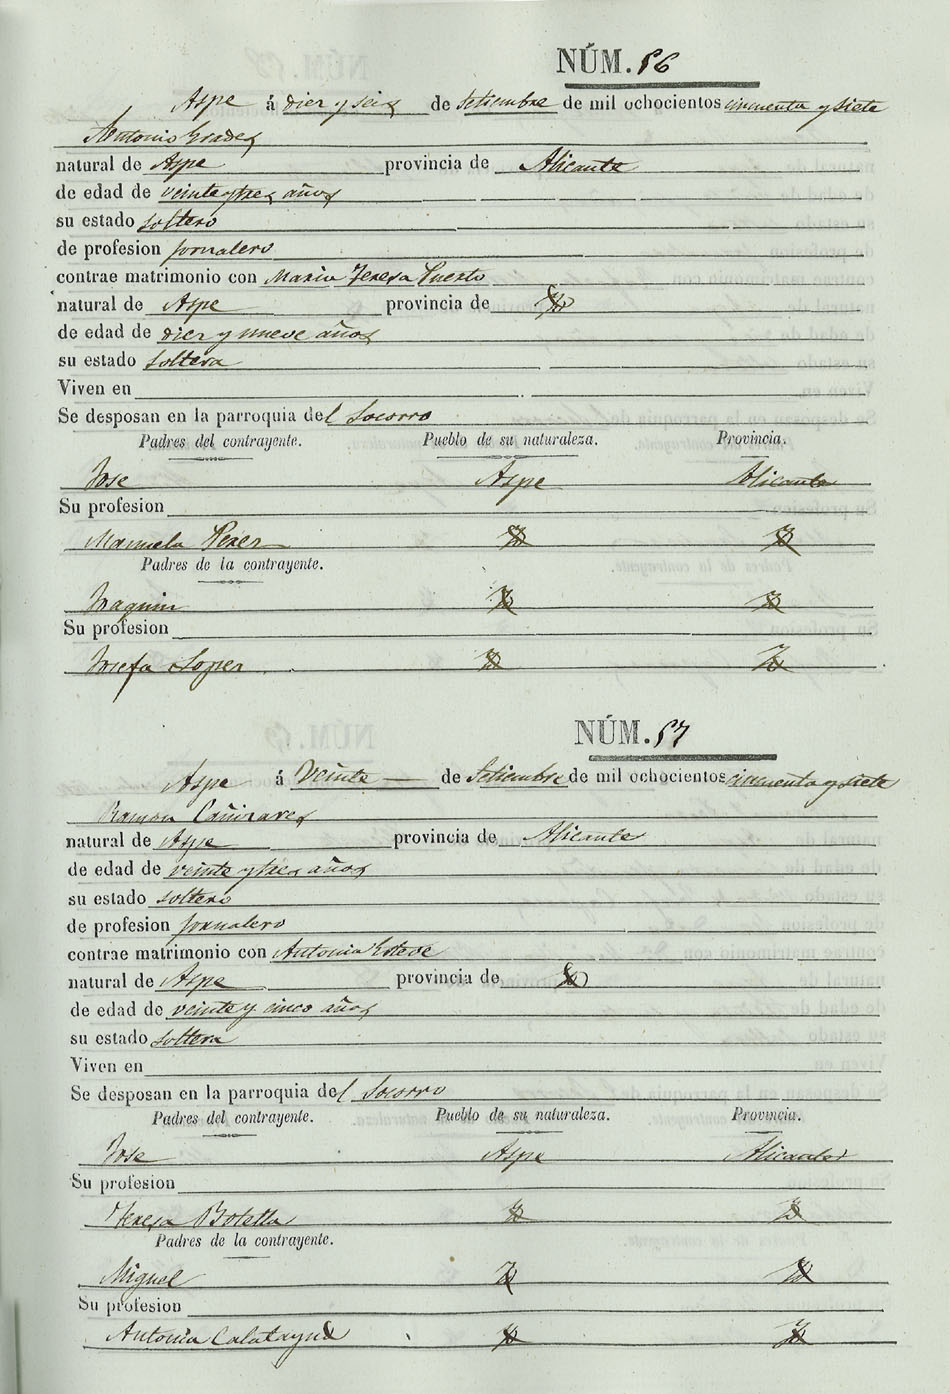 NÚM. 56
Aspe á diez y seis de Setiembre de mil ochocientos cincuenta y siete
Antonio Grades
natural de Aspe provincia de Alicante
de edad de veinte y tres años
su estado soltero
de profesion jornalero
contrae matrimonio con Maria Teresa Puerto
natural de Aspe provincia de
de edad de diez y nueve años
su estado soltera
Viven en
Se desposan en la parroquia del Socorro
Padres del contrayente. Pueblo de su naturaleza. Provincia.
Jose Aspe Alicante
Su profesion
Manuela Perez
Padres de la contrayente.
Joaquin
Su profesion
Josefa Lopez
NÚM. 57
Aspe á Veinte de Setiembre de mil ochocientos cincuenta y siete
Ramon Cañizares
natural de Aspe provincia de Alicante
de edad de veinte y tres años
su estado soltero
de profesion jornalero
contrae matrimonio con Antonia Esteve
natural de Aspe provincia de
de edad de veinte y cinco años
su estado soltera
Viven en
Se desposan en la parroquia del Socorro
Padres del contrayente. Pueblo de su naturaleza. Provincia.
Jose Aspe Alicante
Su profesion
Teresa Botella
Padres de la contrayente.
Miguel
Su profesion
Antonia Calatayud